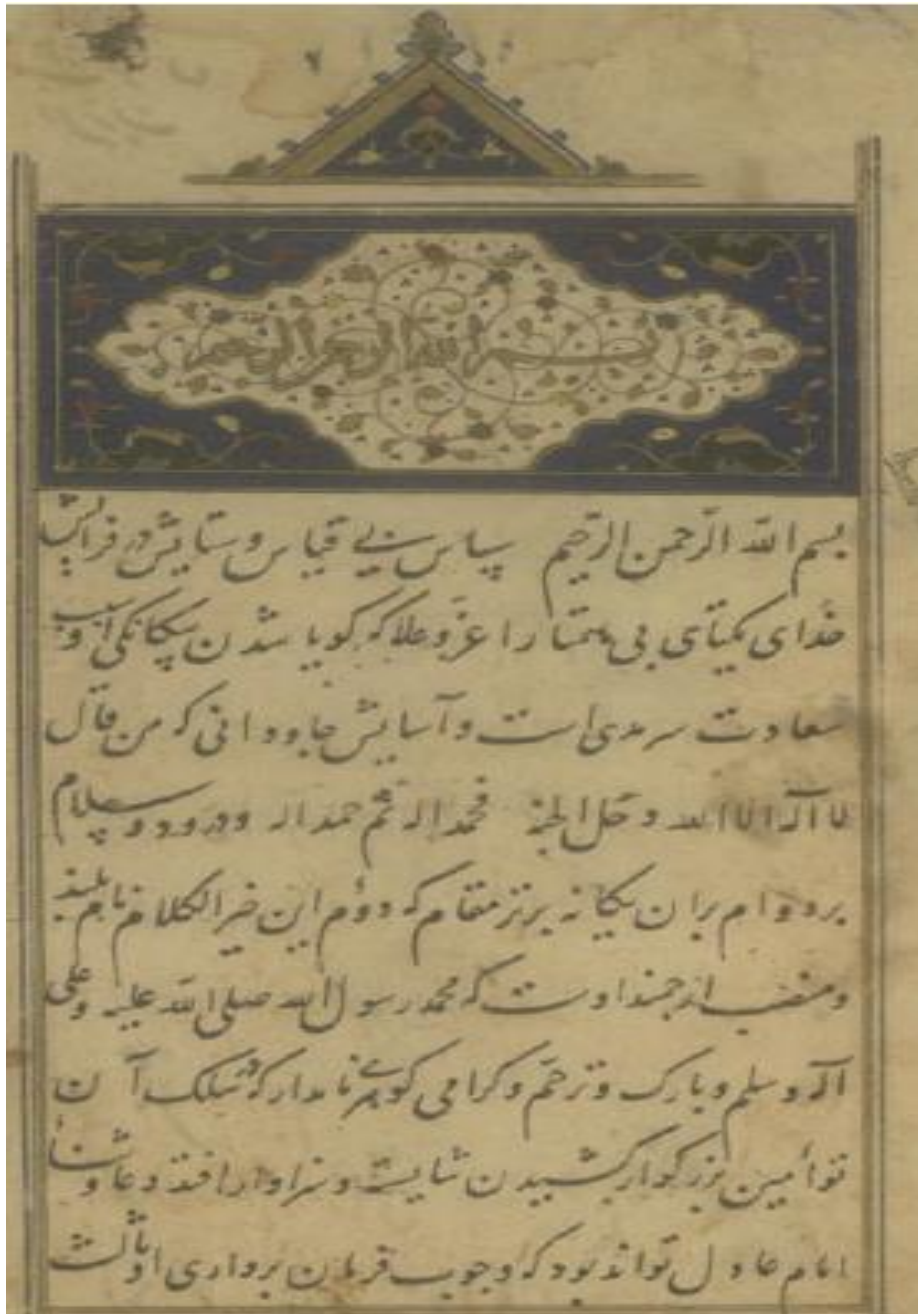 بسم الله الرحمن الرحيم
بسم الله الرّحمن الرّحیم سپاس بی قیاس و ستایش در فزایش
خدای یکتای بی همتا را عزّ و علا که گویا شدن بیکانکی او سبب
سعادت سرمدی است و آسایش جاودانی که من قال
لا اله الا الله دخل الجنة فحمدا له ثم حمدا له و درود و سلام
بر دوام بران یکانه برتر مقام که دوّم این خیر الکلام نام بلند
و منصب ارجمند اوست که محمد رسول الله صلی الله علیه و علی
آله و سلم و بارک و ترحّم و کرامی کوهری نامدار که در سلک آن
توأمین بزرکوار کشیدن شایسته و سزاوار افتد دعا و ثناء
امام عادل تواند بود که وجوب فرمان برداری او ثالث